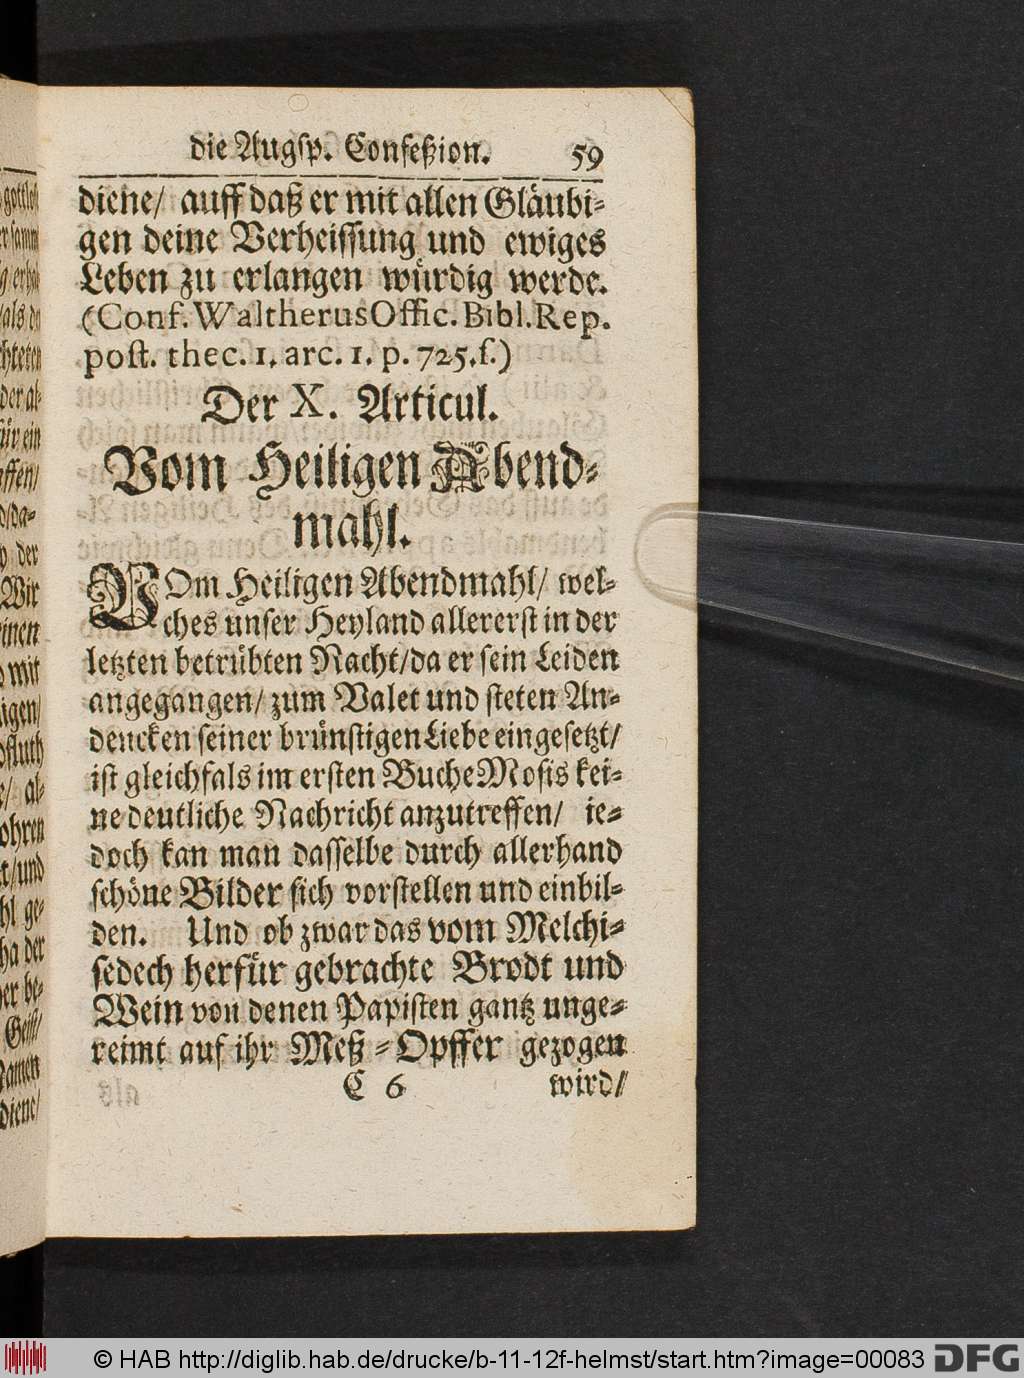 die Augsp. Confeßion. 59
diene/ auff daß er mit allen Gläubi-
gen deine Verheissung und ewiges
Leben zu erlangen würdig werde.
(Conf. Waltherus Offic. Bibl. Rep.
post. thec. 1. arc. 1. p. 725. f.)
Der X. Articul.
Vom Heiligen Abend-
mahl.
VOm Heiligen Abendmahl/ wel-
ches unser Heyland allererst in der
letzten betrübten Nacht/ da er sein Leiden
angegangen/ zum Valet und steten An-
dencken seiner brünstigen Liebe eingesetzt/
ist gleichfals im ersten Buche Mosis kei-
ne deutliche Nachricht anzutreffen/ je-
doch kan man dasselbe durch allerhand
schöne Bilder sich vorstellen und einbil-
den. Und ob zwar das vom Melchi-
sedech herfür gebrachte Brodt und
Wein von denen Papisten gantz unge-
reimt auf ihr Meß-Opffer gezogen
C 6 wird/
© HAB http://diglib.hab.de/drucke/b-11-12f-helmst/start.htm?image=00083 DFG